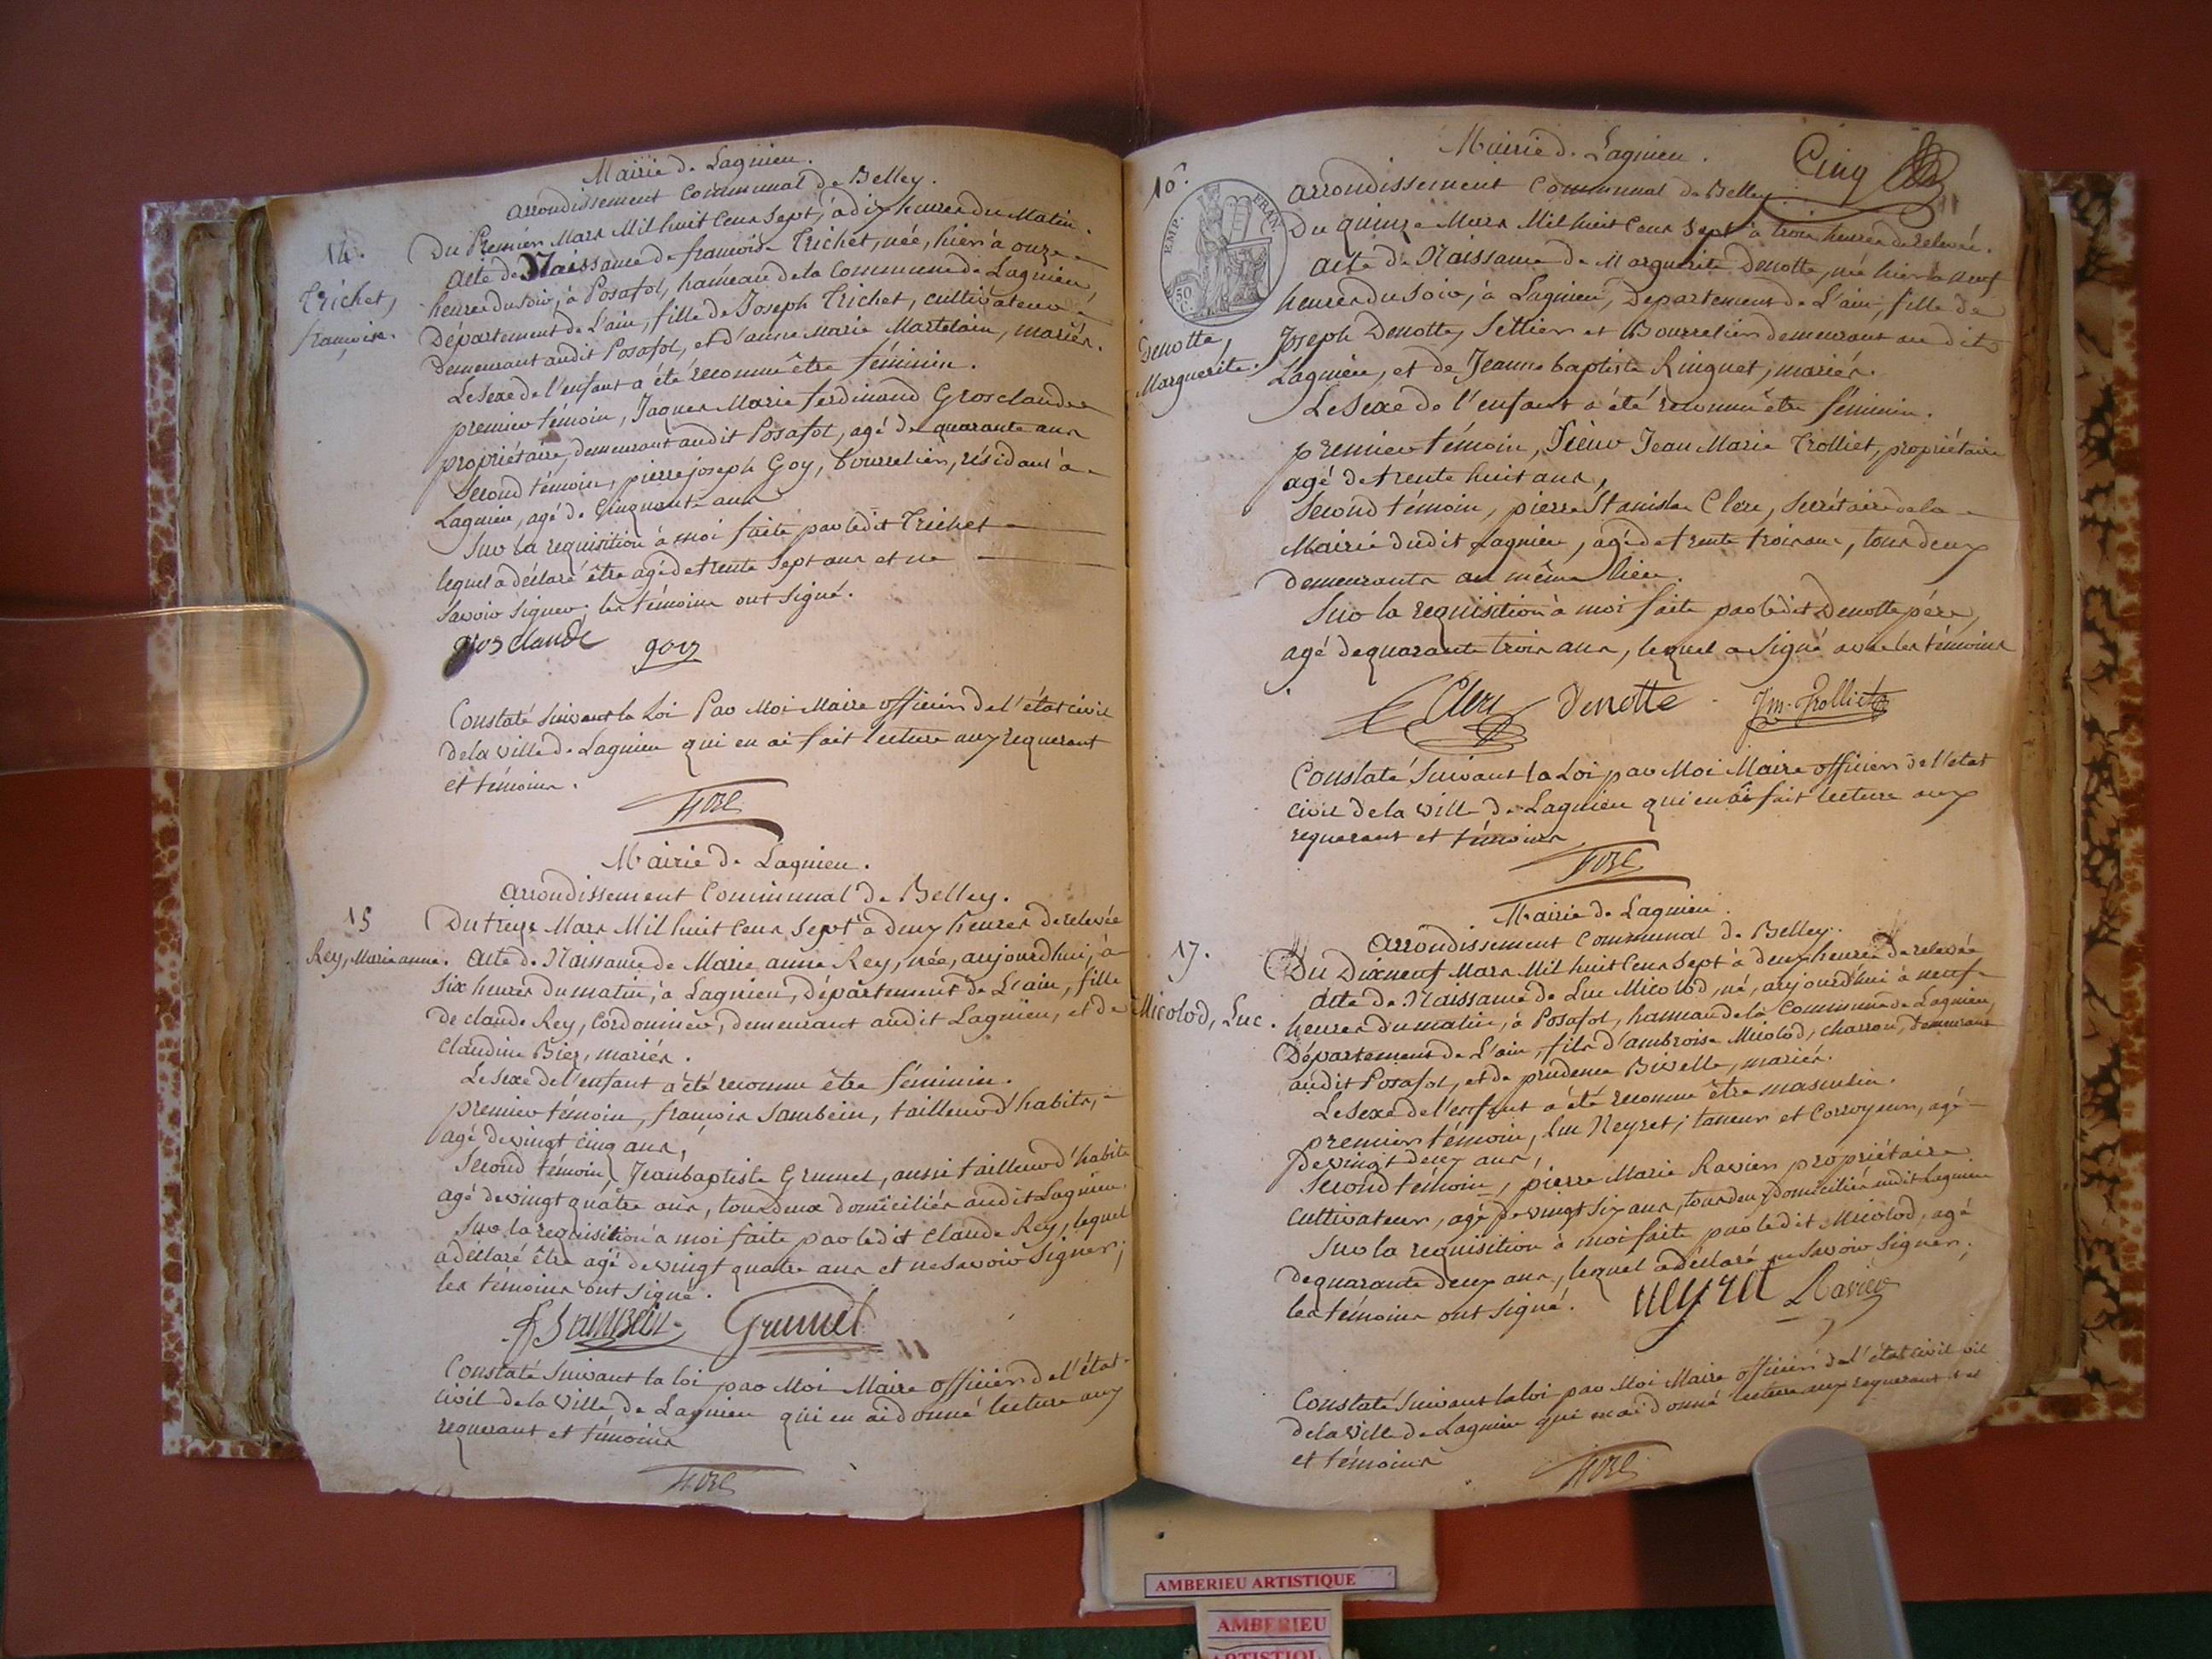 Mairie de Lagnieu.
arrondissement Communal de Belley.
14.
Du Premier Mars Mil huit Cens Sept, à dix heures du Matin.
Acte de Naissance de françoise Trichet, née, hier à onze
Trichet,
françoise.
heures du soir, à Posafol, hameau de la Commune de Lagnieu,
Département de L'ain, fille de Joseph Trichet, cultivateur
demeurant audit Posafol, et d'anne Marie Martelain, mariés.
Le Sexe de l'enfant a été reconnu être féminin.
premier témoin, Jaques Marie ferdinand Grosclaude
propriétaire, demeurant audit Posafol, agé de quarante ans
Second témoin, pierre joseph Goy, bourrelier, résidant à
Lagnieu, agé de Cinquante ans
Sur la requisition à moi faite par ledit Trichet
lequel a déclaré être agé de trente Sept ans et ne
Savoir Signer; les témoins ont Signé.
grosclaude goy
Constaté Suivant la Loi Par Moi Maire officier de l'état civil
de la ville de Lagnieu qui en ai fait lecture aux requerant
et témoins.
Mairie de Lagnieu.
arrondissement Communal de Belley.
15
Du treize Mars Mil huit Cens Sept à deux heures de relevée
Rey, Marie anne.
Acte de Naissance de Marie anne Rey, née, aujourdhui, à
Six heures du matin, à Lagnieu, département de L'ain, fille
de claude Rey, Cordonnier, demeurant audit Lagnieu, et de
Claudine Biez, mariés.
Le Sexe de l'enfant a été reconnu être féminin.
premier témoin, françois Sambein, tailleur d'habits,
agé de vingt cinq ans,
Second témoin, Jeanbaptiste Grumel, aussi tailleur d'habits
agé de vingt quatre ans, tous deux domiciliés audit Lagnieu.
Sur la requisition à moi faite par ledit Claude Rey, lequel
a déclaré être agé de vingt quatre ans et ne Savoir Signer;
les témoins ont Signé.
f Sambein Grumel
Constaté Suivant la loi par Moi Maire officier de l'état
civil de la Ville de Lagnieu qui en ai donné lecture aux
requerant et témoins
Mairie de Lagnieu.
Cinq
arrondissement Communal de Belley
EMP. FRAN.
50 C.
Du quinze Mars Mil huit Cens Sept à trois heures de relevée.
Acte de Naissance de Marguerite Denotte, née hier à neuf
heures du soir, à Lagnieu, Département de L'ain, fille de
Denotte,
Marguerite.
Joseph Denotte, Sellier et Bourrelier demeurant audit
Lagnieu, et de Jeanne baptiste Ringuet, mariés.
Le Sexe de l'enfant a été reconnu être féminin.
premier témoin, Sieur Jean Marie Trolliet, propriétaire
agé de trente huit ans,
Second témoin, pierre Stanislas Clerc, Secrétaire de la
Mairie dudit Lagnieu, agé de trente trois ans, tous deux
demeurants au même lieu.
Sur la requisition à moi faite par ledit Denotte père,
agé de quarante trois ans, lequel a Signé avec les témoins
Clerc Denotte Jm. Trolliet
Constaté Suivant la Loi par Moi Maire officier de l'état
civil de la ville de Lagnieu qui en ai fait lecture aux
requerant et témoins
Mairie de Lagnieu.
arrondissement Communal de Belley.
17.
Du Dixneuf Mars Mil huit Cens Sept à deux heures de relevée
Acte de Naissance de Luc Micolod, né, aujourd'hui à neuf
Micolod, Luc.
heures du matin, à Posafol, hameau de la Commune de Lagnieu,
Département de L'ain, fils d'ambroise Micolod, charron, demeurant
audit Posafol, et de prudence Bivelle, mariés.
Le Sexe de l'enfant a été reconnu être masculin.
premier témoin, Luc Neyret, taneur et Corroyeur, agé
de vingt deux ans,
Second témoin, pierre Marie Ravier propriétaire
cultivateur, agé de vingt Six ans, tous deux domiciliés audit Lagnieu
Sur la requisition à moi faite par ledit Micolod, agé
de quarante deux ans, lequel a déclaré ne Savoir Signer;
les témoins ont Signé. neyret Ravier
Constaté Suivant la loi par Moi Maire officier de l'état civil
de la Ville de Lagnieu qui en ai donné lecture aux requerant
et témoins
AMBERIEU ARTISTIQUE
AMBERIEU
ARTISTIQU